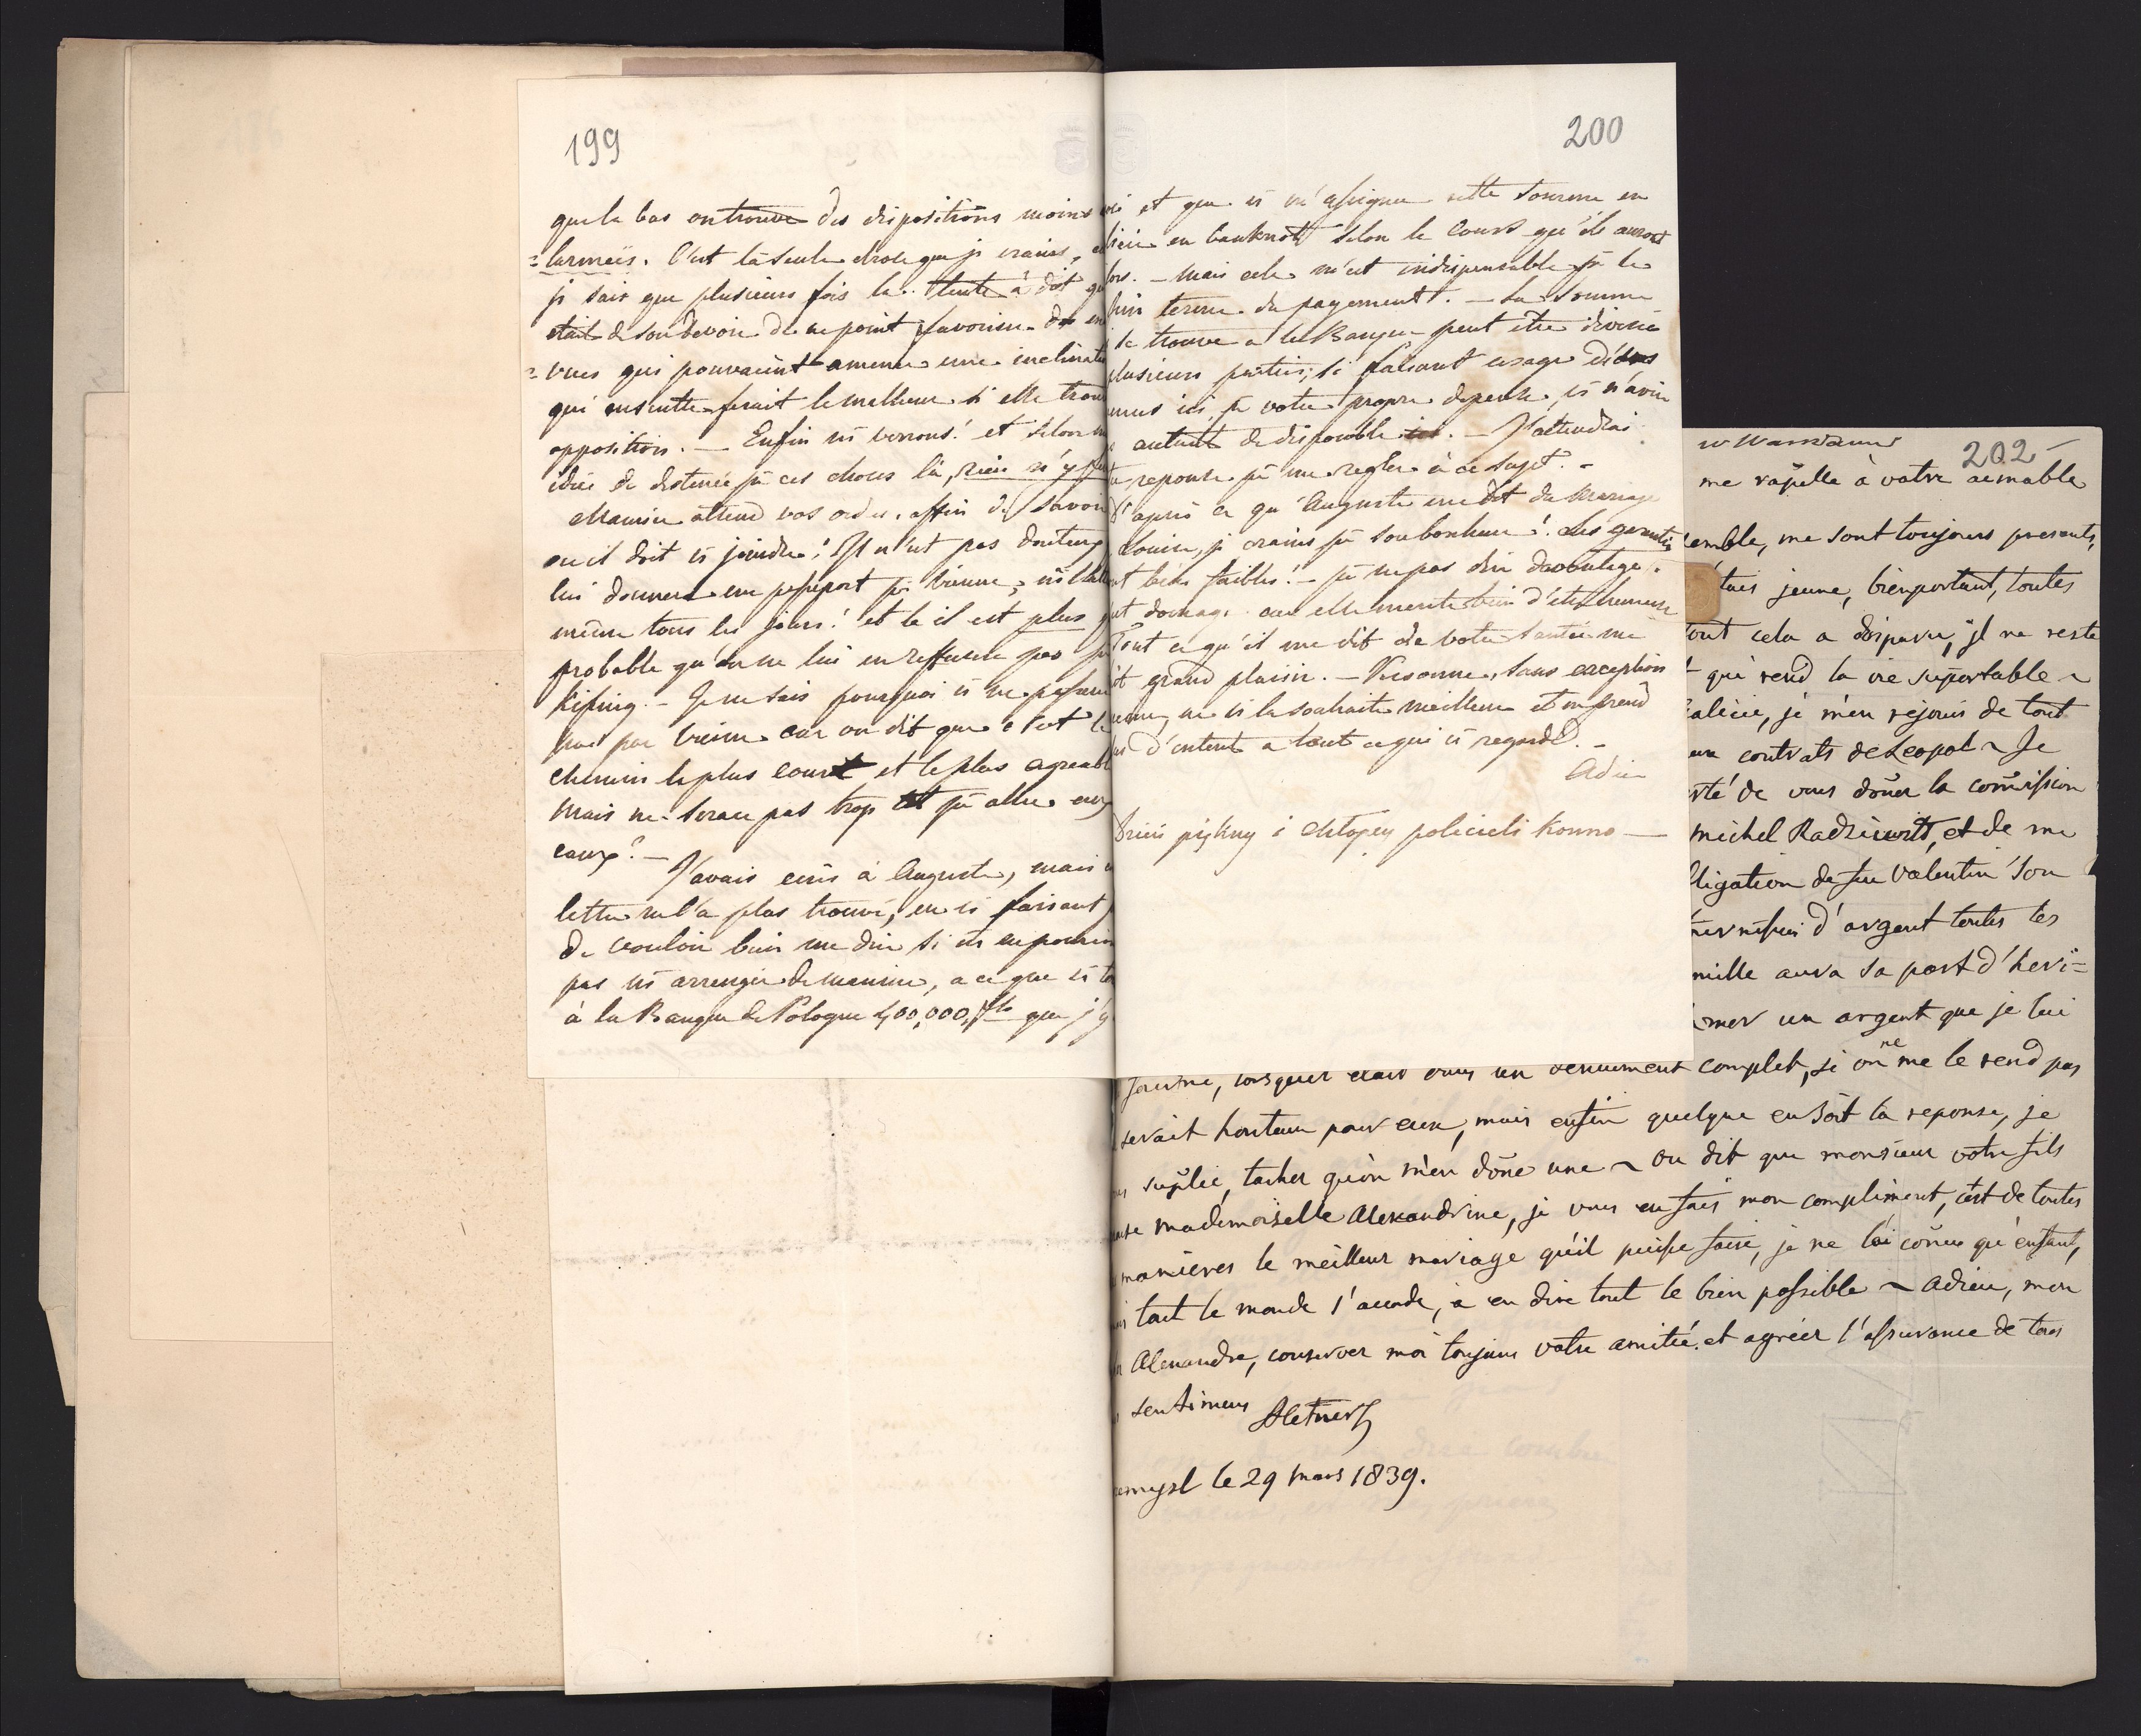 199
que la bas on trouve des dispositions moins
larmeïs. C'est la seule chose que je crains,
je sais que plusieurs fois la tante a dit
etait de son devoir de ne point favoriser des
vues qui pouvaient amener une inclinati
qui ensuitte ferait le malheur si elle trou
opposition. — Enfin ns verrons! et selon
idée de destinée pr ces choses là, rien n'y
Maurice attend vos ordres, affin de savoir
ou il doit vs joindre! Il n'est pas douteux
lui donnera un passeport pr Vienne,
même tous les jours! et la il est plus
probable qu'on ne lui en reffusera pas pr
Kissing. — Je ne sais pourquoi vs ne passeri
pas par Vienne car on dit que c'est le
chemin le plus court et le plus agreabl
Mais ne serace pas trop tôt pr aller aux
eaux? —
J'avais ecris à Auguste, mais
lettre ne l'a plus trouvé, en vs faisant
de vouloir bien me dire si ns ne pourrions
pas ns arranger de maniere, a ce que vs
à la Banque de Pologne 400,000 fls que j'y
200
et que vs m'assigniez cette somme en
en banknots selon le cours qu'ils auront
lors. — Mais cela m'est indispensable pr le
terme du payement. — La somme
se trouve a la Banque peut être divisée
plusieurs parties; si faisant usage
ici, pr votre propre depense, vs n'aviez
autant de disponible. — J'attendrai
reponse pr me regler à ce sujet. —
D'après ce qu'Auguste me dit du Mariage
Louise, je crains pr son bonheur! Les garanties
bien faibles! — pr ne pas dire davantage.
domage car elle merite bien d'etre heureuse
Tout ce qu'il me dit de votre santée me
grand plaisir. — Personne, sans exception
ne vs la souhaite meilleure et ne prend
d'interet a tout ce qui vs regarde. —
Adieu
piękny i chłopcy polecieli konno —
w Warszawie
202
me rapelle à votre aimable
emble, me sont toujours presents,
tais jeune, bienportant, toutes
tout cela a disparu, il ne reste
qui rend la vie suportable ~
alicie, je m'en rejouis de tout
contrats de Leopol ~ Je
rté de vous doner la comission
michel Radziwill, et de me
ligation de feu Valentin son
d'argent toutes les
mille aura sa part d'heri=
mer un argent que je lui
lorsqu'il etait dans un denuement complet, si on ne me le rend pas
serait honteux pour eux, mais enfin quelque en soit la reponse, je
suplie, tacher qu'on m'en done une ~ On dit que monsieur votre fils
mademoiselle Alexandrine, je vous en fais mon compliment, c'est de toutes
manieres le meilleur mariage qu'il puisse faire, je ne l'ai conu qu'enfant,
tout le monde s'acorde, a en dire tout le bien possible ~ Adieu, mon
Alexandre, conserver moi toujours votre amitié et agréer l'assurance de tous
sentimens
emysl le 29 mars 1839.